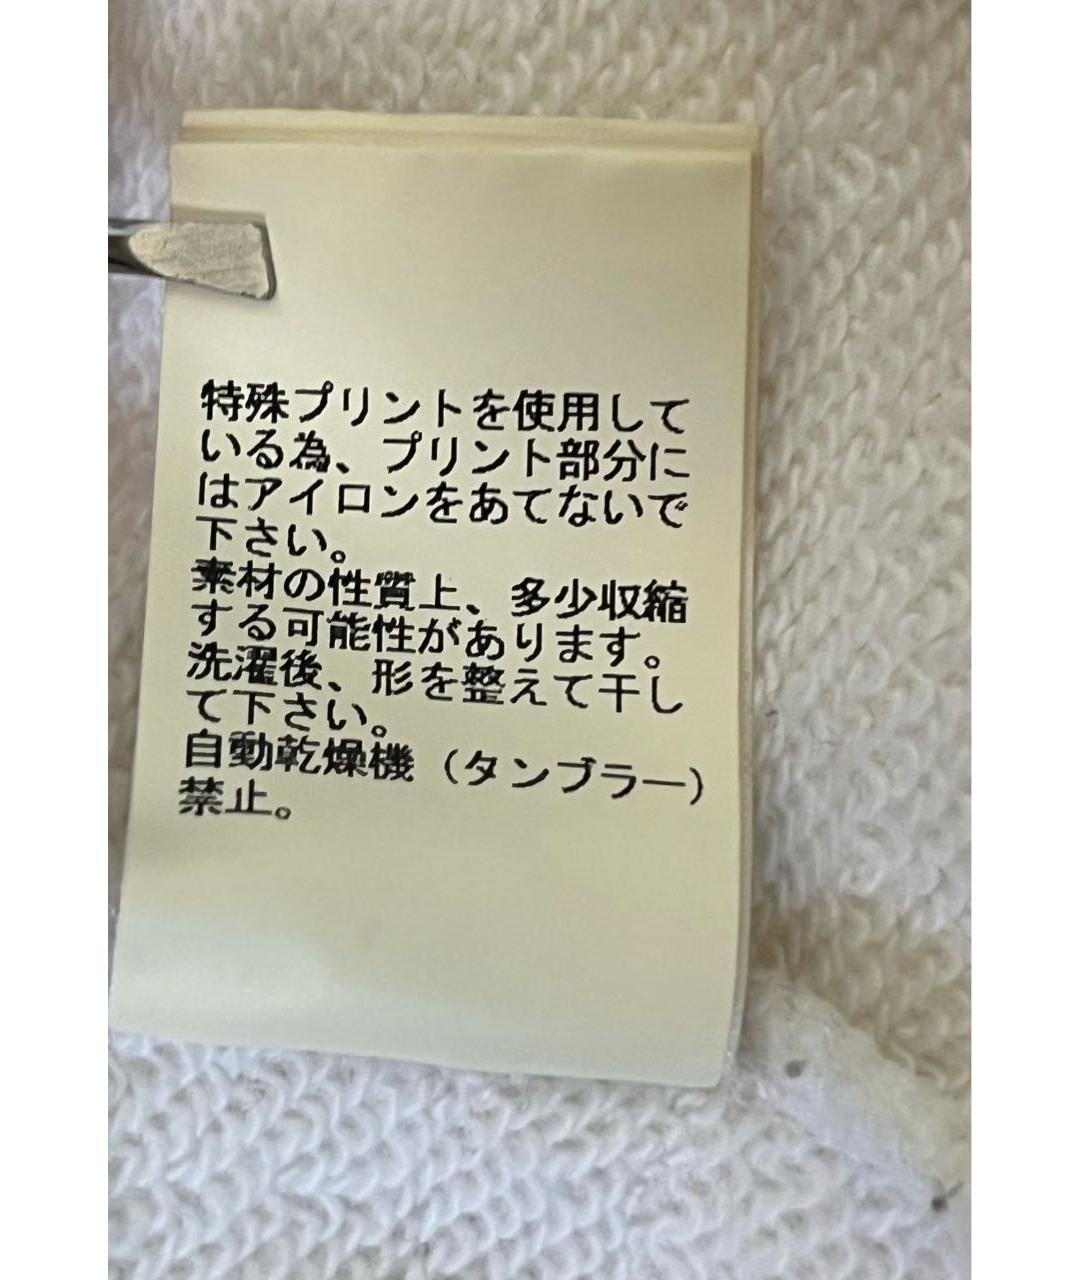 特殊プリントを使用して
いる為、プリント部分に
はアイロンをあてないで
下さい。
素材の性質上、多少収縮
する可能性があります。
洗濯後、形を整えて干し
て下さい。
自動乾燥機（タンブラー）
禁止。